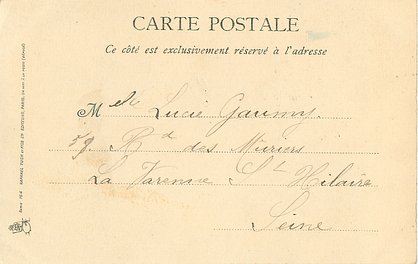 CARTE POSTALE
Ce côté est exclusivement réservé à l'adresse
Melle Lucie Gaumy
59. Bd des Muriers
La Varenne St Hilaire
Seine
RAPHAEL TUCK